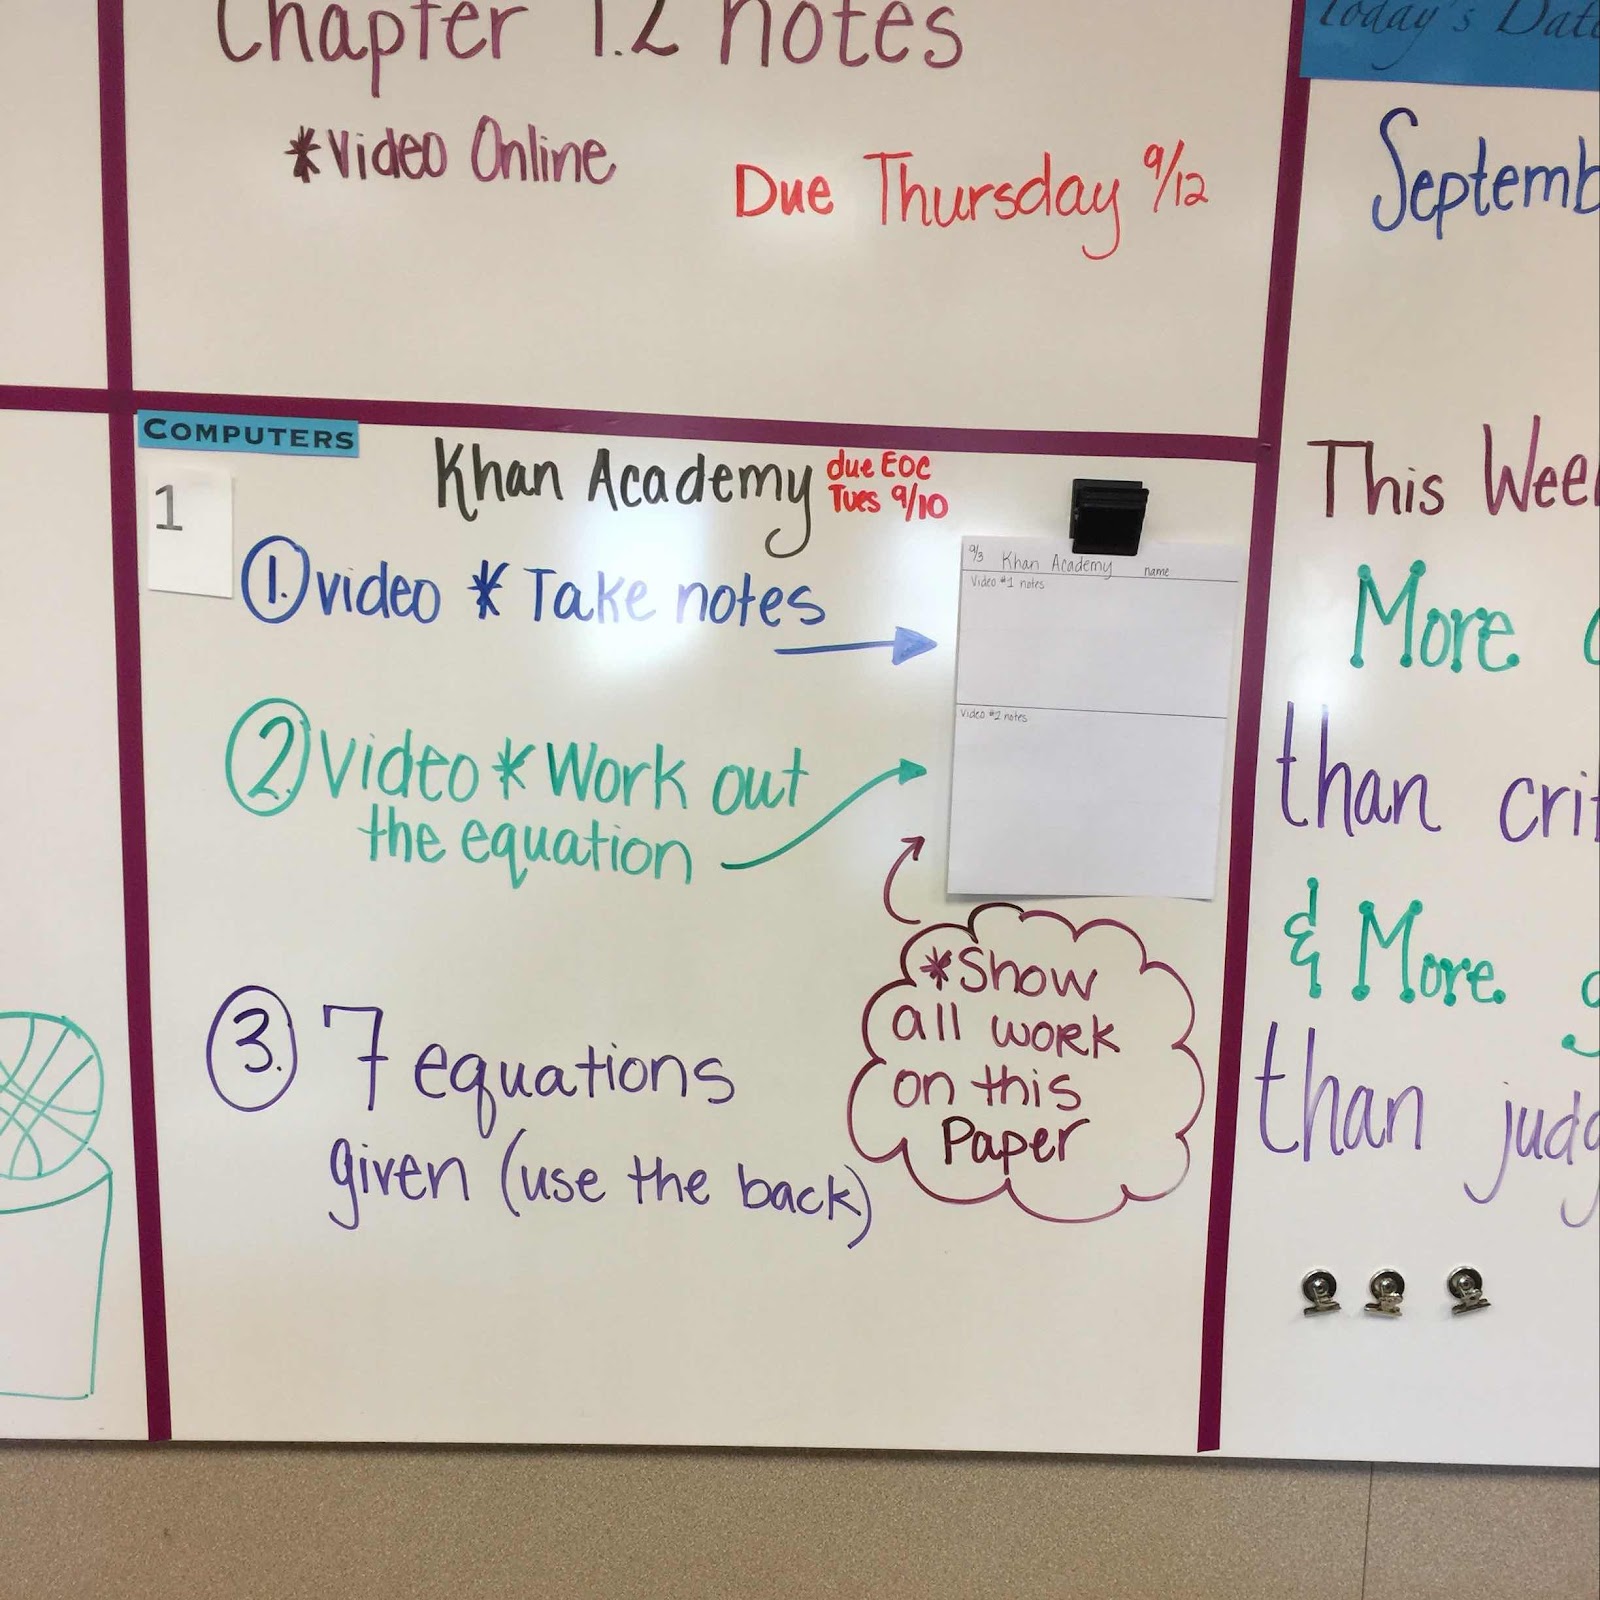 Chapter 1.2 notes
*Video Online
Due Thursday 9/12
Today's Date
COMPUTERS
1
Khan Academy
due EOC
Tues 9/10
1. video * Take notes
2. Video * Work out
the equation
3. 7 equations
given (use the back)
9/3 Khan Academy name
Video #1 notes
Video #2 notes
*Show
all work
on this
Paper
Septemb
This Wee
More
than cri
& More
than judg